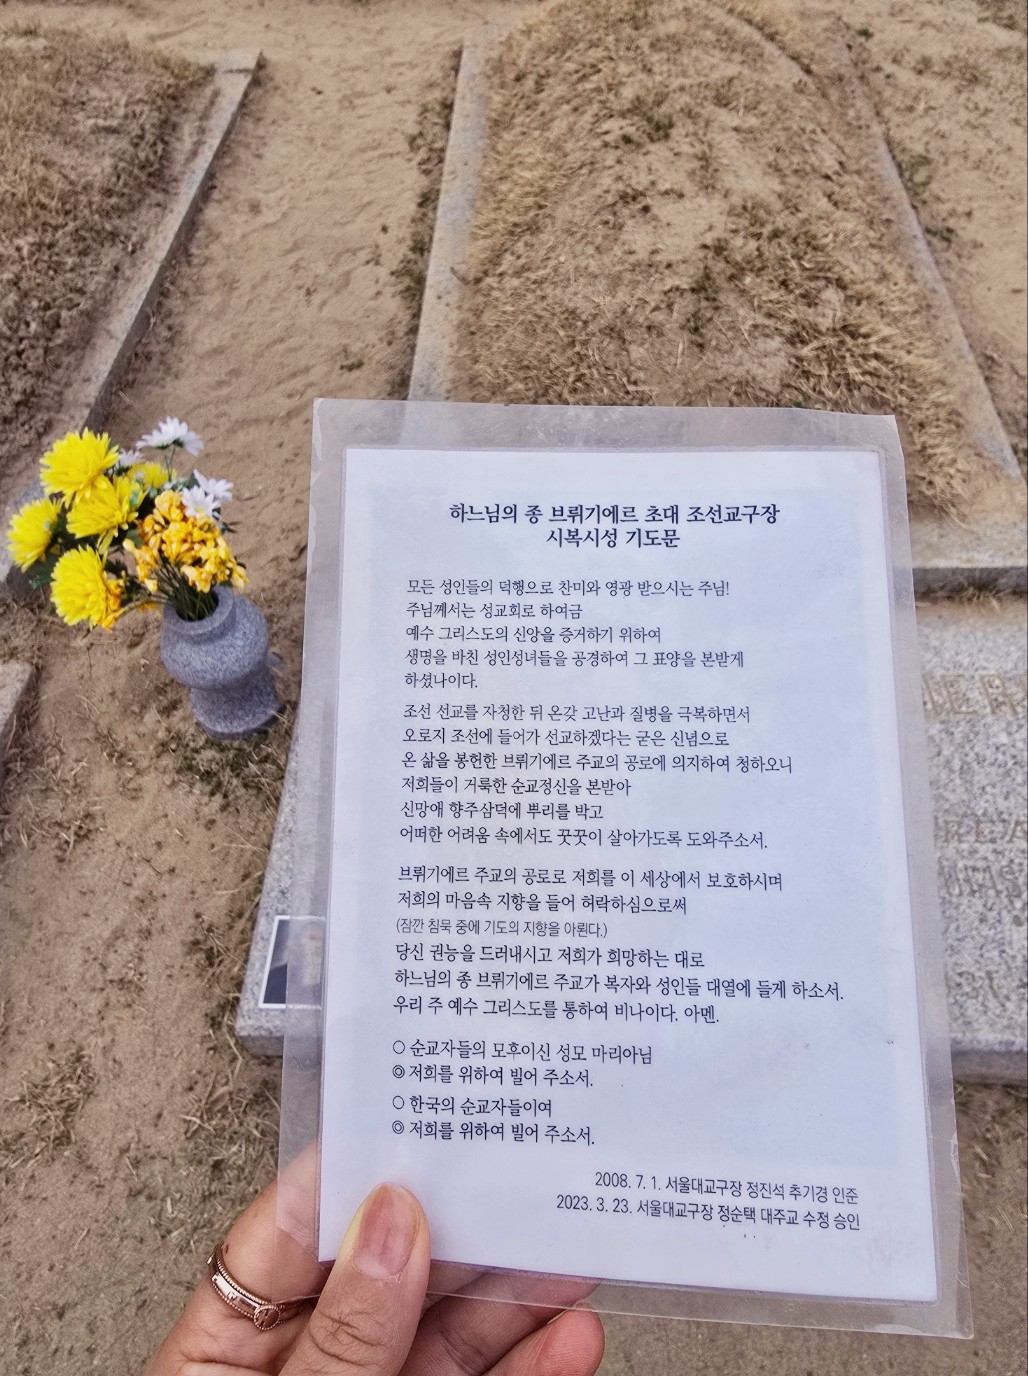 하느님의 종 브뤼기에르 초대 조선교구장
시복시성 기도문
모든 성인들의 덕행으로 찬미와 영광 받으시는 주님!
주님께서는 성교회로 하여금
예수 그리스도의 신앙을 증거하기 위하여
생명을 바친 성인성녀들을 공경하여 그 표양을 본받게
하셨나이다.
조선 선교를 자청한 뒤 온갖 고난과 질병을 극복하면서
오로지 조선에 들어가 선교하겠다는 굳은 신념으로
온 삶을 봉헌한 브뤼기에르 주교의 공로에 의지하여 청하오니
저희들이 거룩한 순교정신을 본받아
신망애 향주삼덕에 뿌리를 박고
어떠한 어려움 속에서도 꿋꿋이 살아가도록 도와주소서.
브뤼기에르 주교의 공로로 저희를 이 세상에서 보호하시며
저희의 마음속 지향을 들어 허락하심으로써
(잠깐 침묵 중에 기도의 지향을 아뢴다.)
당신 권능을 드러내시고 저희가 희망하는 대로
하느님의 종 브뤼기에르 주교가 복자와 성인들 대열에 들게 하소서.
우리 주 예수 그리스도를 통하여 비나이다. 아멘.
○ 순교자들의 모후이신 성모 마리아님
◎ 저희를 위하여 빌어 주소서.
○ 한국의 순교자들이여
◎ 저희를 위하여 빌어 주소서.
2008. 7. 1. 서울대교구장 정진석 추기경 인준
2023. 3. 23. 서울대교구장 정순택 대주교 수정 승인